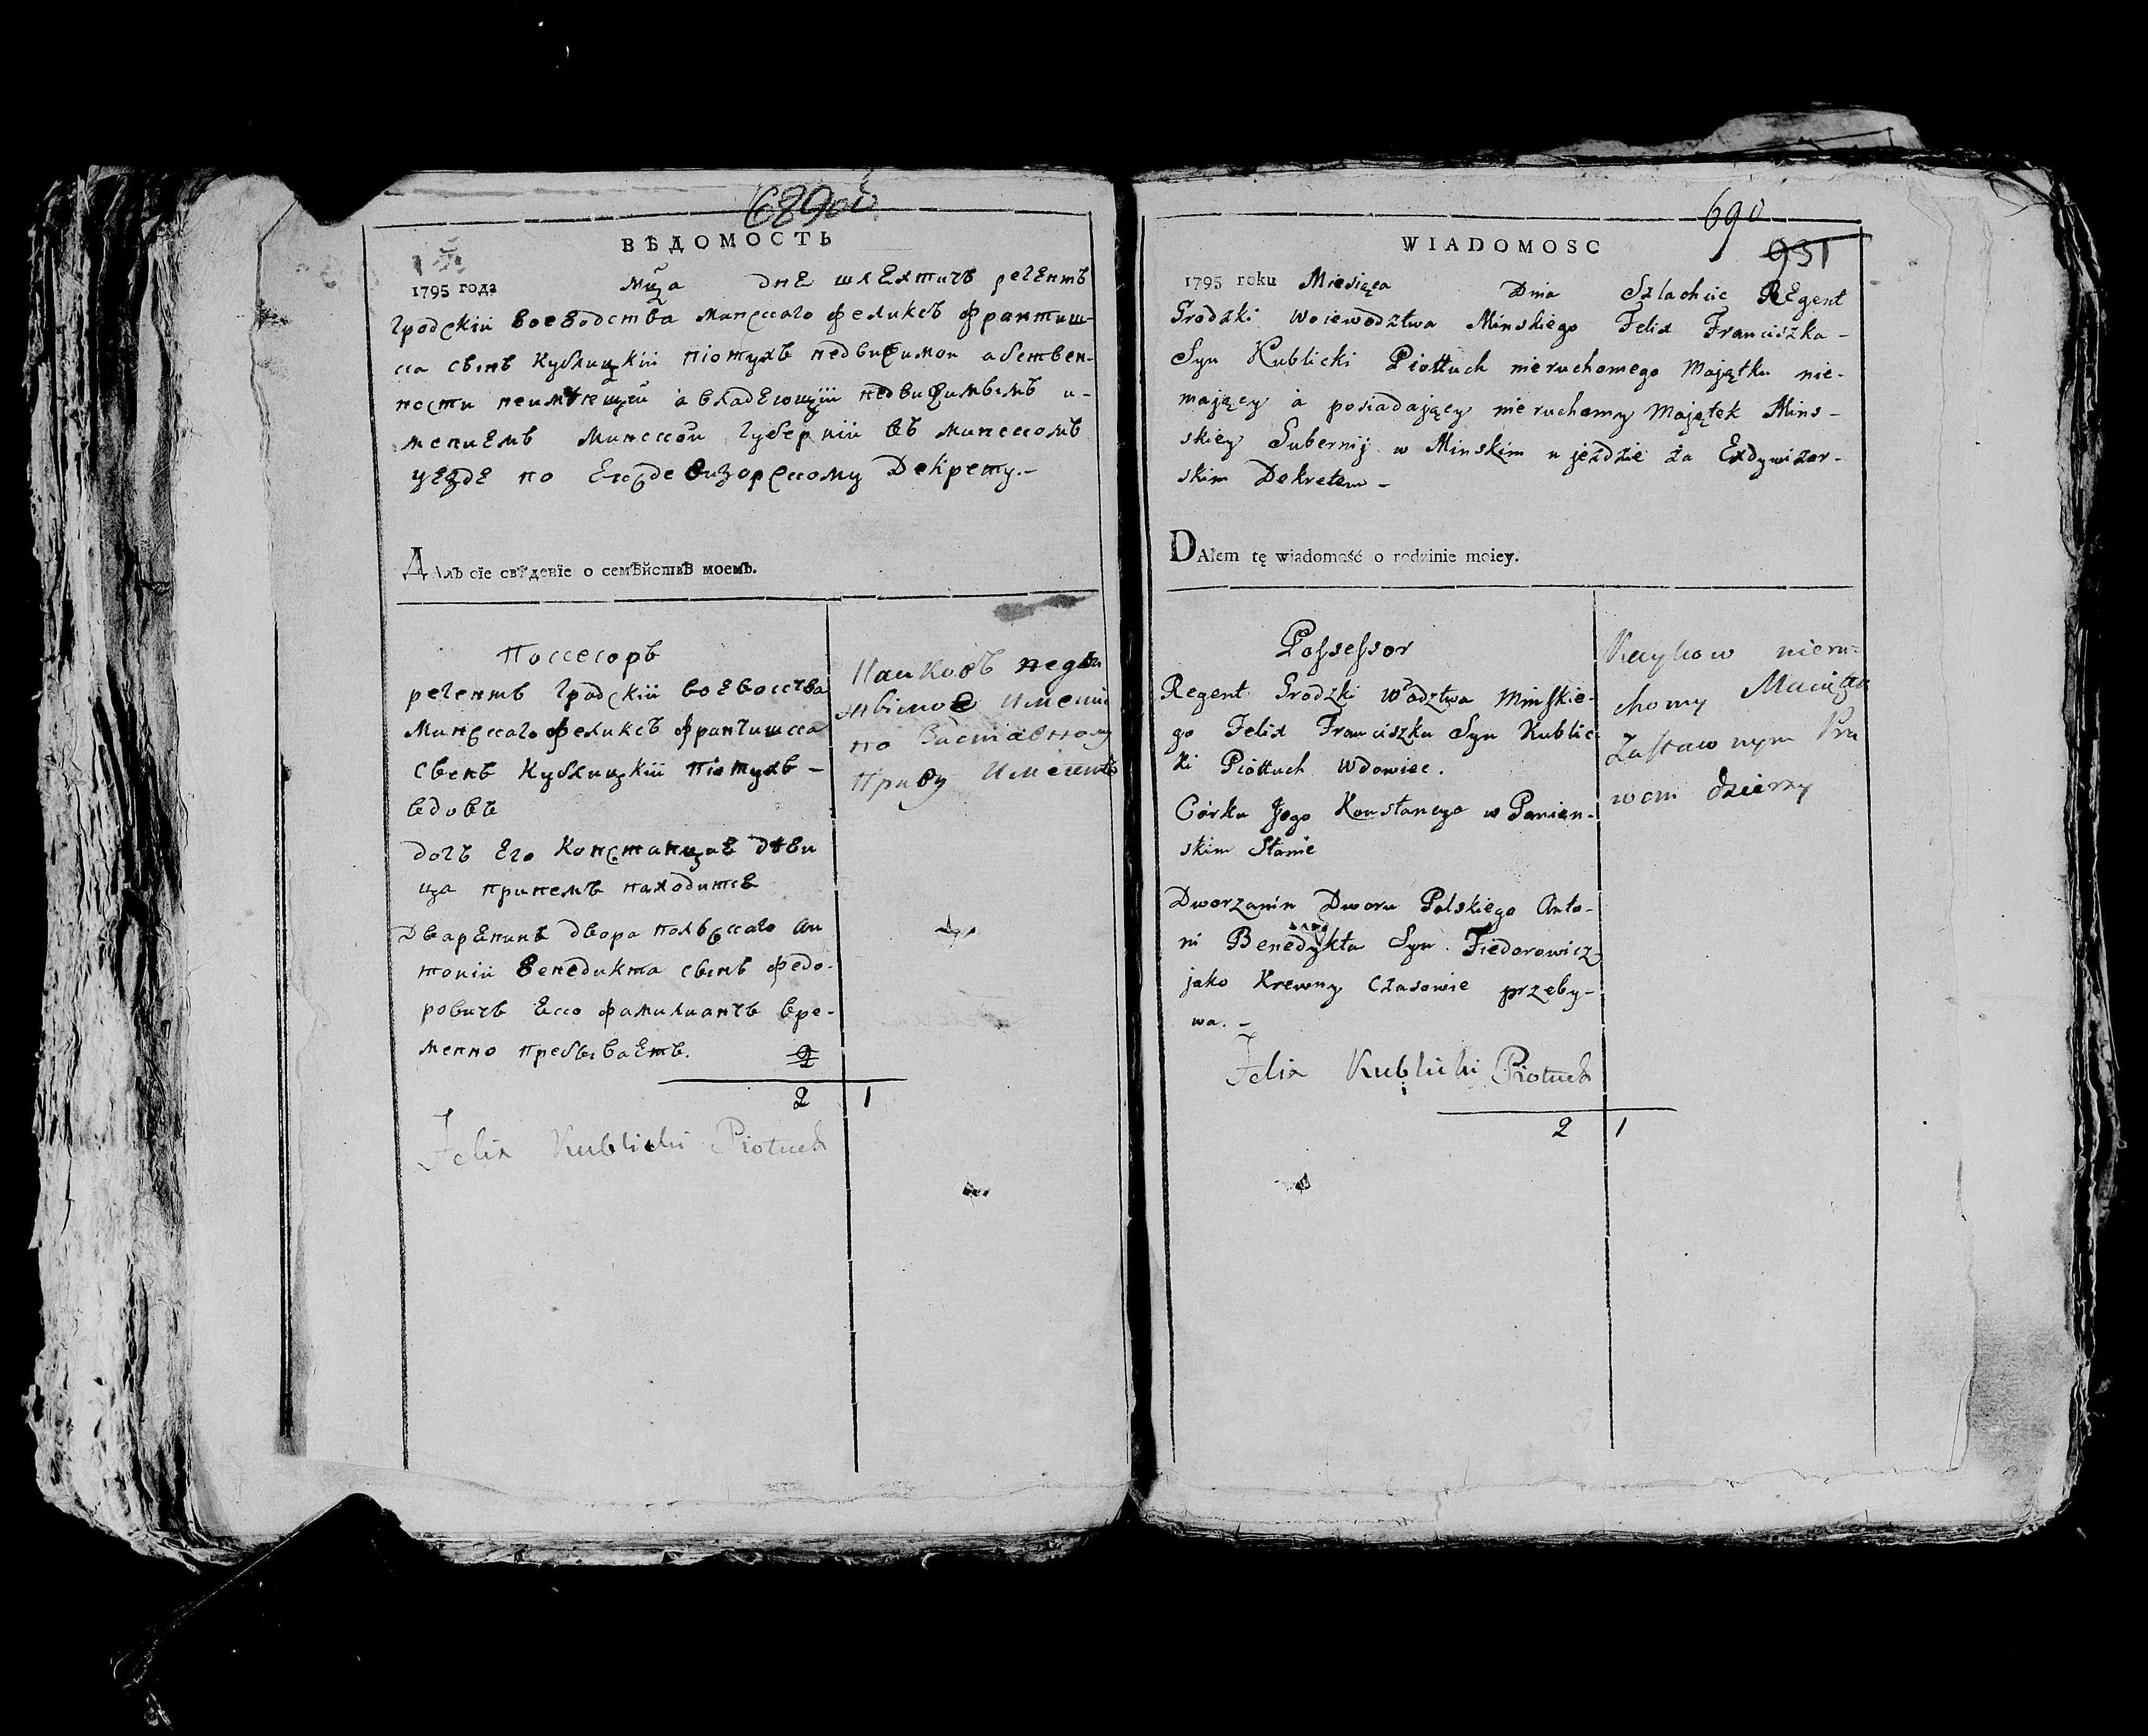 689об
ВѢДОМОСТЬ
1795 года мца дне шлехтичъ регентъ
Гродскій воеводства минскаго феликсъ франтиш-
ка сынъ Кублицкій піотухъ недвижимои абственъ-
ности неимѣющій а владеющій недвижимымъ и-
мениемъ минской губерніи въ минскомъ
уезде по Ексдевизорскому Декрету.-
Далъ сіе свѣденіе о семѣйствѣ моемъ.
Поссесоръ
регентъ гродскій воевоства
минскаго феликсъ франтишка
сынъ Кублицкій піотухъ -
вдовъ
дочъ Его Констанцае дѣви
ца принемъ находится
Дваренинъ двора польскаго ан
тоній венедикта сынъ федо-
ровичъ Ево фамилиантъ вре-
менно пребываетъ.
2 1
Felix Kublicki Piotuch
недви
жимое имени
по Заставному
праву
690
WIADOMOSC
931
1795 roku Miesiąca Dnia Szlachcic REgent
Grodzki Woiewodztwa Minskiego Felix Franciszka -
Syn Kublicki Piottuch nieruchomego Majątku nie-
mający a posiadający nieruchomy Majątek Mins-
skiey Gubernij w Minskim ujeździe za Exdywizor-
skim Dekretem -
DAłem tę wiadomość o rodzinie moiey.
Possessor
Regent Grodzki Wodztwa Minskie-
go Felix Franciszka Syn Kublic-
ki Piottuch Wdowiec.
Córka Jego Konstancya w Panien-
skim Stanie
Dworzanin Dworu Polskiego Anto-
ni Benedykta Syn Fiedorowicz
jako Krewny Czasowie przeby-
wa. -
Felix Kublicki Piotuch
2 1
nieru-
chomy Maiątek
Zastawnym Pra
wem dzierzy